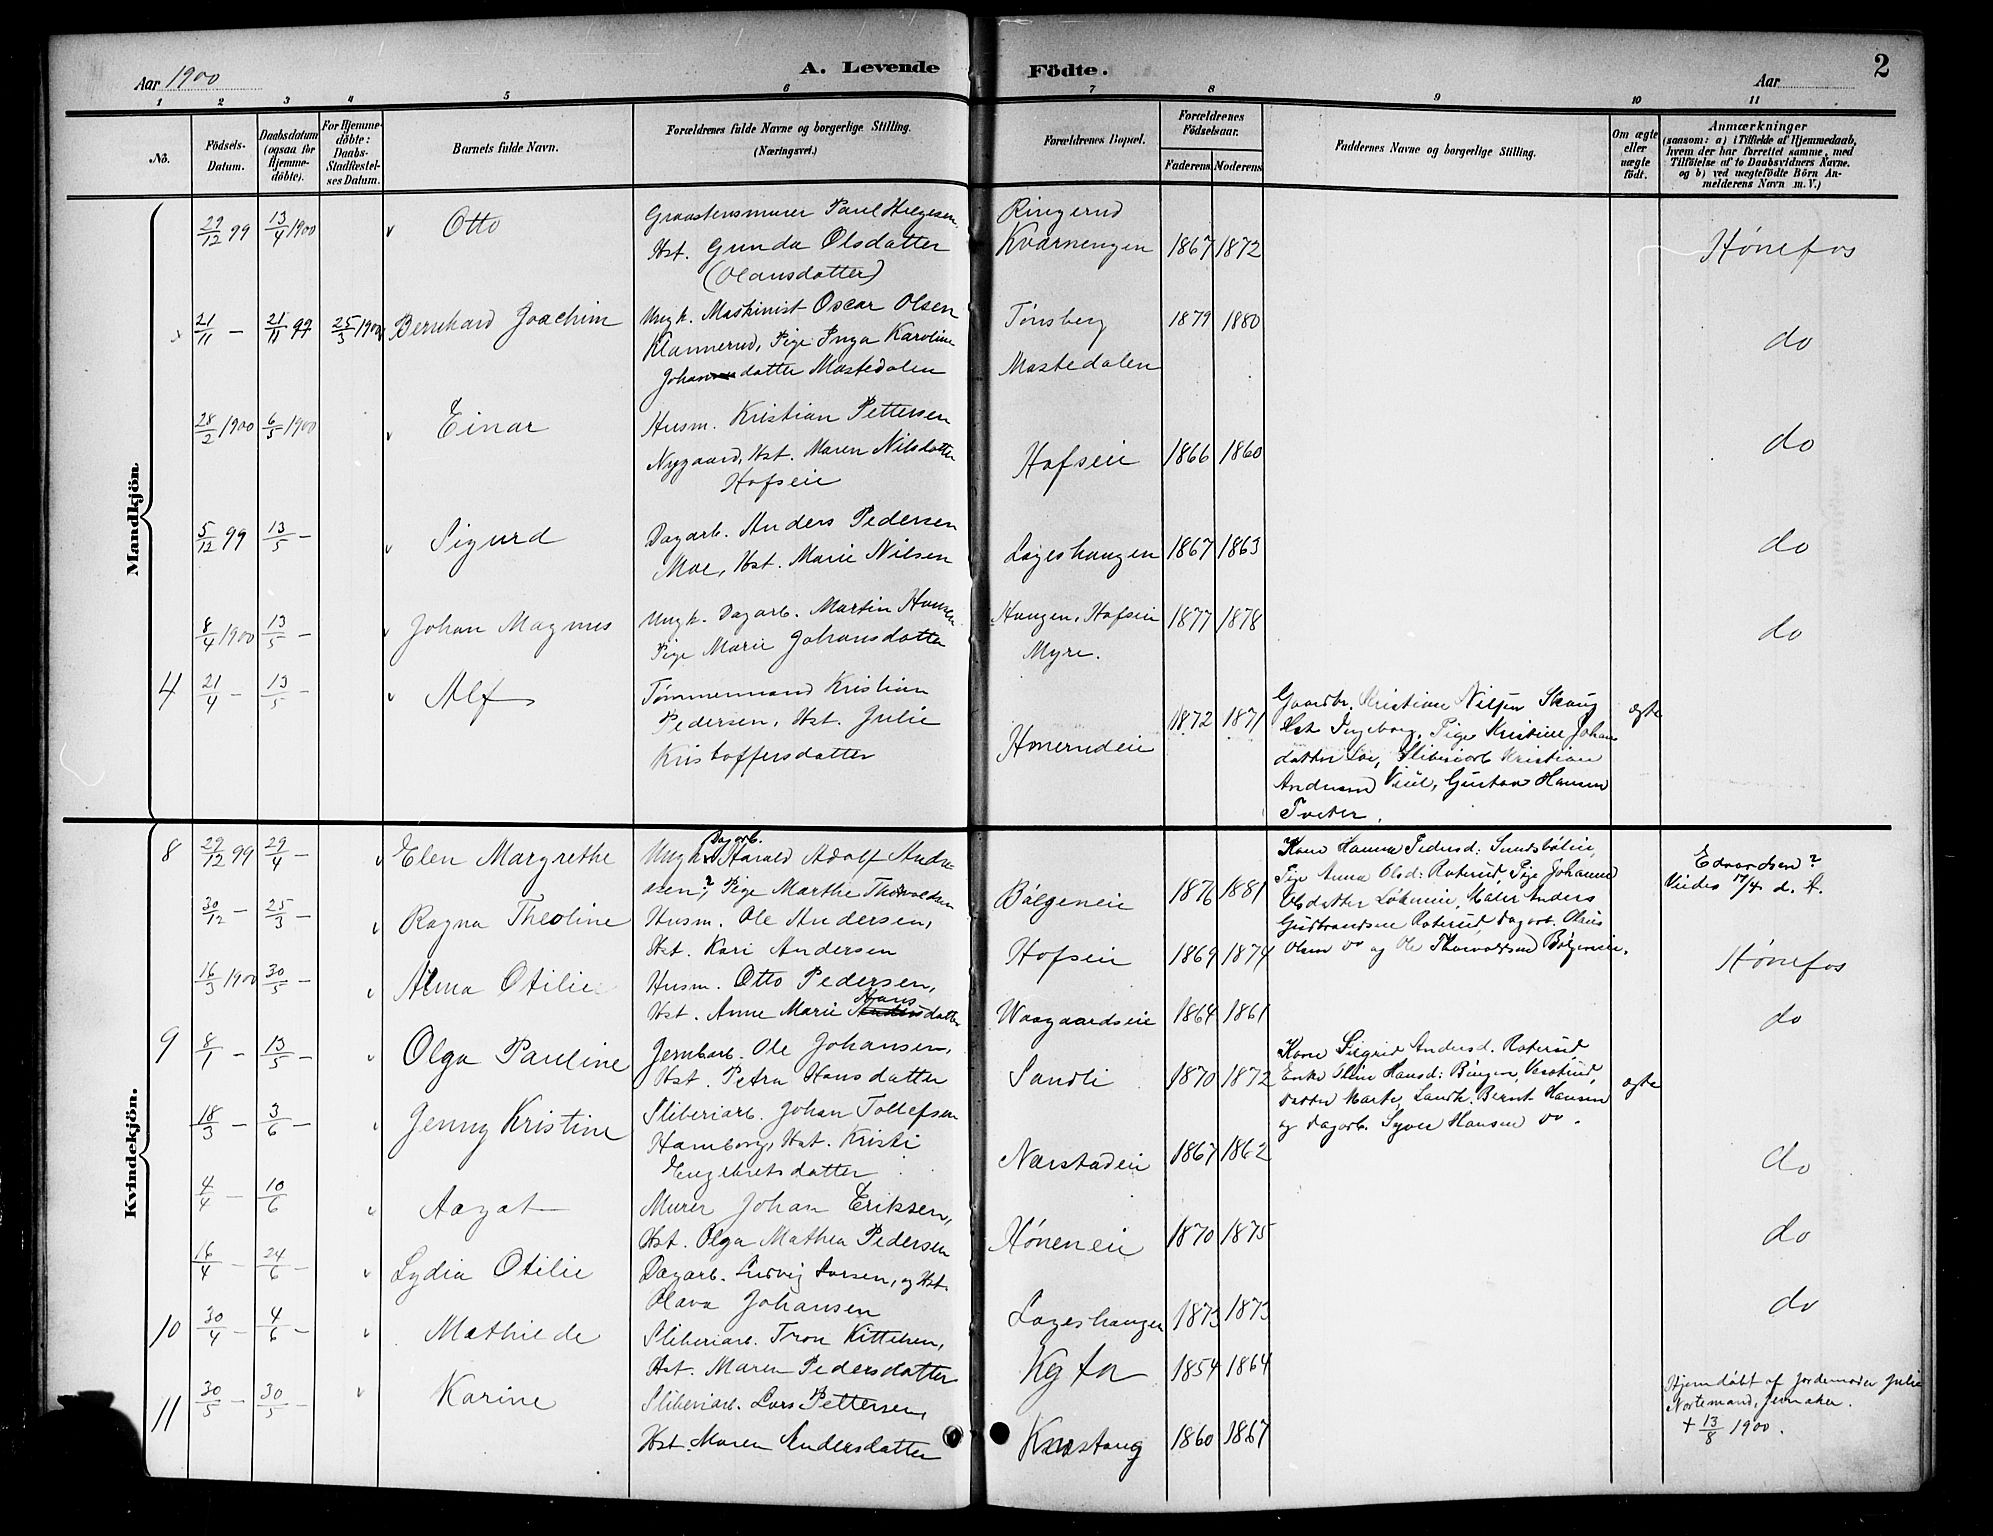 Aar 1900
A. Levende
Födte.
Aar
2
1 2 3 4 5 6 7 8 9 10 11
No.
Födsels-
Datum.
Daabsdatum
(ogsaa for
Hjemme-
döbte).
For Hjemme-
döbte:
Daabs-
Stadfæstel-
ses Datum.
Barnets fulde Navn.
Forældrenes fulde Navne og borgerlige Stilling.
(Næringsvei.)
Forældrenes Bopæl.
Forældrenes
Födselsaar.
Faderens. Moderens.
Faddernes Navne og borgerlige Stilling.
Om ægte
eller
uægte
födt.
Anmærkninger
(saasom: a) i Tilfælde af Hjemmedaab,
hvem der har forrettet samme, med
Tilföielse af to Daabsvidners Navne.
og b) ved uægtefödte Börn An-
melderens Navn m. V.)
Mandkjön.
29/12 99 13/4 1900 Otto
Graastensmurer Paul Helgesen
Hst. Gunda Olsdatter
(Olausdatter)
Ringerud
Kvarnengen 1867 1872
Hønefos
x 21/11 – 21/11 99 25/3 1900 Bernhard Joachim
Ungk. Maskinist Oscar Olsen
Klannerud, Pige Inga Karoline
Johansdatter Mastedalen
Tønsberg 1879 1880
Mastedalen
do
28/2 1900 6/5 1900 Einar
Husm. Kristian Pettersen
Nygaard, Hst. Maren Nilsdatter
Hofseie
Hofseie 1866 1860
do
5/12 99 13/5 – Sigurd
Dagarb. Anders Pedersen
Moe, Hst. Marie Nilsen
Lageshaugen 1867 1863
do
8/4 1900 13/5 – Johan Magnus
Ungk. Dagarb. Martin Hansen
Pige Marie Johansdatter
Haugen, Hofseie 1877 1878
Myre.
do
4 21/4 – 13/5 – Alf
Tømmermand Kristian
Pedersen, Hst. Julie
Kristoffersdatter
Hønerudeie 1872 1871
Gaardbr. Kristian Nilsen Skaug
Hst Ingeborg, Pige Kristine Johans
datter Loe, Sliberiarb Kristian
Andersen Vaul, Gustav Hansen
Tveter.
ægte
Kvindekjön.
8 29/12 99 29/4 – Elen Margrethe
Ungk. Dagarb. Harald Adolf Andre-
esen,? Pige Marthe Thorvaldsen
Bølgeneie 1876 1881
Kone Hanna Pedersd: Sundbølin,
Pige Anna Olsd: Roterud, Pige Johanne
Olsdatter Løkeneie, Maler Anders
Gudbrandsen Roterud, Dagarb. Olaus
Olsen do og Ole Thorvaldsen Bølgeneie.
Edvardsen?
Viedes 17/4 d. A.
30/12 – 25/3 – Ragna Theoline
Husm. Ole Andersen,
Hst. Kari Andersen
Hofseie 1869 1874
Hønefos
16/3 1900 30/5 – Alma Otilie
Husm. Otto Pedersen,
Hst. Anne Marie Hansdatter
Waagaardseie 1864 1861
do
9 8/1 – 13/5 – Olga Pauline
Jernbarb. Ole Johansen,
Hst. Petra Hansdatter
Sandli 1870 1872
Kone Sigrid Andersd. Roterud
Enke Eline Hansd: Bingen, Vestlund,
datter Marte, Landh. Bernt Hansen
og dagarb. Syver Hansen do.
ægte
18/3 – 3/6 – Jenny Kristine
Sliberiarb. Johan Tollefsen
Hamborg, Hst. Kristi
Engebretsdatter
Nærstadeie 1867 1862
do
4/4 – 10/6 Aagot
Murer Johan Eriksen,
Hst. Olga Mathea Pedersen
Høneneie 1870 1875
do
16/4 – 24/6 – Lydia Otilie
Dagarb. Ludvig Larsen, og Hst.
Olava Johansen
Lageshaugen 1873 1873
do
10 30/4 – 4/6 – Mathilde
Sliberiarb. Tron Kittelsen,
Hst. Maren Pedersdatter
1854 1864
11 30/5 – 30/5 – Karine
Sliberiarb. Lars Pettersen,
Hst. Maren Andersdatter
1860 1867
Hjemdøbt af Jordemoder Julie
Nortemand, Jevnaker.
+ 13/8 1900.